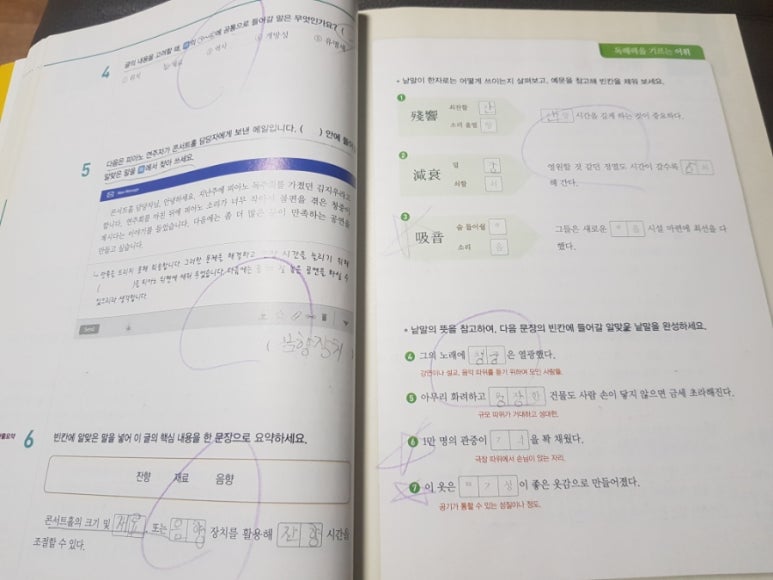 4 글의 내용을 고려할 때, 의 ㉠~㉢에 공통으로 들어갈 말은 무엇인가요? (
④ 개방성
5 다음은 피아노 연주자가 콘서트홀 담당자에게 보낸 메일입니다. ( ) 안에 들어
알맞은 말을 에서 찾아 쓰세요.
콘서트홀 담당자님, 안녕하세요. 지난주에 피아노 독주회를 가졌던 김지우라고
합니다. 연주회를 마친 뒤에 피아노 소리가 너무 작아서 불편을 겪은 청중이
계시다는 이야기를 들었습니다. 다음에는 좀 더 많은 분이 만족하는 공연을
만들고 싶습니다.
시간을 늘리기 위해
Send
( 음향장치 )
6 빈칸에 알맞은 말을 넣어 이 글의 핵심 내용을 한 문장으로 요약하세요.
잔향 재료 음향
콘서트홀의 크기 및 재료, 또는 음향 장치를 활용해 잔향 시간을
조절할 수 있다.
독해력을 기르는 어휘
낱말이 한자로는 어떻게 쓰이는지 살펴보고, 예문을 참고해 빈칸을 채워 보세요.
1
殘響 잔 향
소리 울릴
시간을 길게 하는 것이 중요하다.
2
減衰 덜 감
쇠할 쇠
영원할 것 같던 정열도 시간이 갈수록 감쇠
해 간다.
3
吸音 숨 들이쉴
소리 음
그들은 새로운 흡음 시설 마련에 최선을 다
했다.
낱말의 뜻을 참고하여, 다음 문장의 빈칸에 들어갈 알맞은 낱말을 완성하세요.
4 그의 노래에 청중은 열광했다.
강연이나 설교, 음악 따위를 듣기 위하여 모인 사람들.
5 아무리 화려하고 웅장한 건물도 사람 손이 닿지 않으면 금세 초라해진다.
규모 따위가 거대하고 성대한.
6 1만 명의 관중이 을 꽉 채웠다.
극장 따위에서 손님이 앉는 자리.
7 이 옷은 이 좋은 옷감으로 만들어졌다.
공기가 통할 수 있는 성질이나 정도.